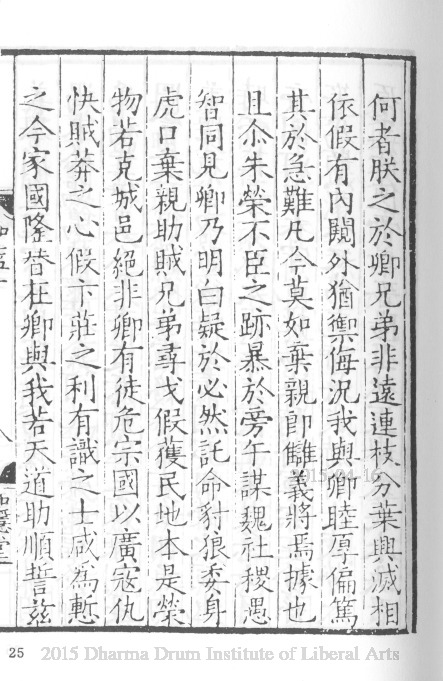 何者朕之於卿兄弟非遠連枝分葉興滅相
依假有内鬩外猶禦侮況我與卿睦厚偏篤
其於急難凡今莫如棄親即讎義將焉據也
且尒朱榮不臣之跡暴於旁午謀魏社稷愚
智同見卿乃明白疑於必然託命豺狼委身
虎口棄親助賊兄弟尋戈假獲民地本是榮
物若克城邑絕非卿有徒危宗國以廣寇仇
快賊莽之心假卞莊之利有識之士咸為慙
之今家國隆替在卿與我若天道助順誓兹
25
2015 Dharma Drum Institute of Liberal Arts